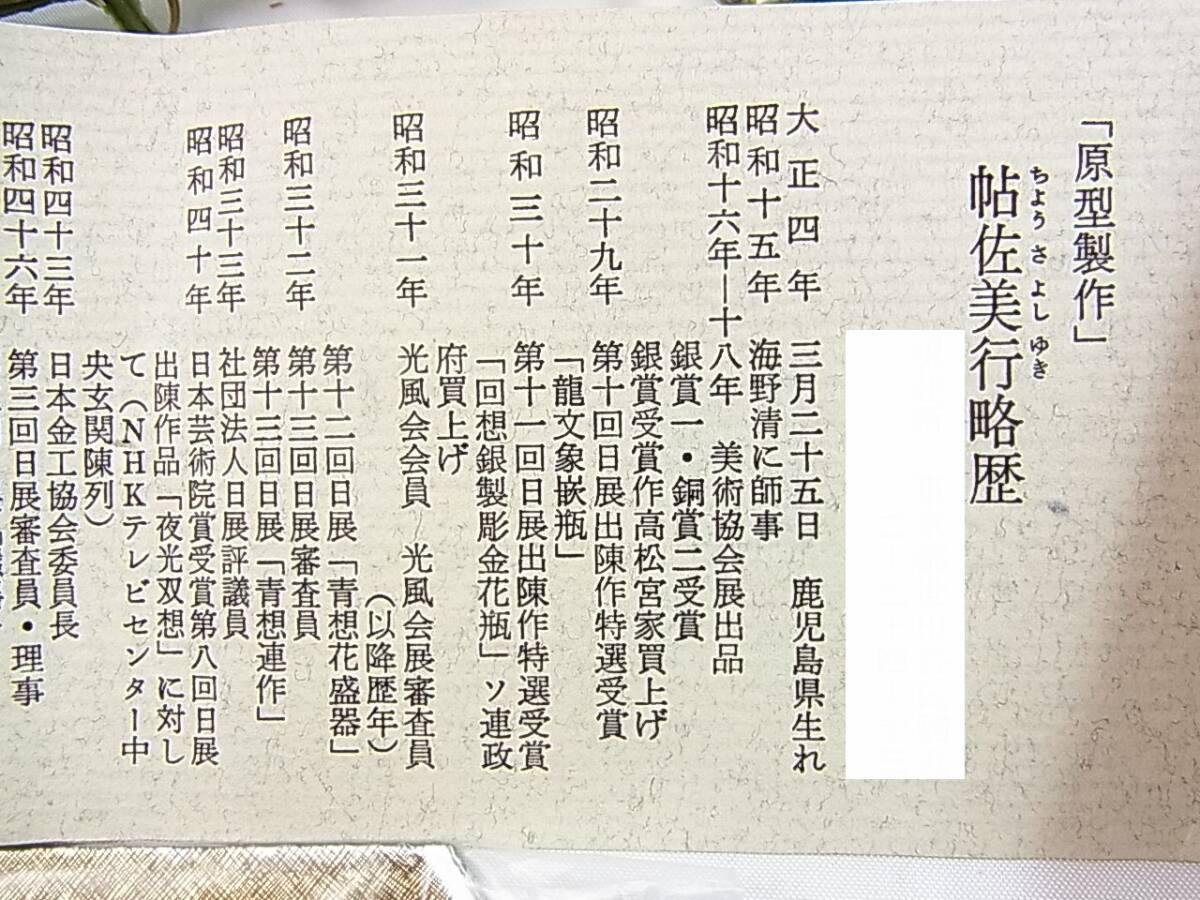 「原型製作」
帖佐美行略歴
ちょうさよしゆき
大正四年 三月二十五日 鹿児島県生れ
昭和十五年 海野清に師事
昭和十六年―十八年 美術協会展出品
銀賞一・銅賞二受賞
銀賞受賞作高松宮家買上げ
昭和二十九年 第十回日展出陳作特選受賞
「龍文象嵌瓶」
昭和三十年 第十一回日展出陳作特選受賞
「回想銀製彫金花瓶」ソ連政
府買上げ
昭和三十一年 光風会会員 光風会展審査員
(以降歴年)
第十二回日展「青想花盛器」
昭和三十二年 第十三回日展審査員
第十三回日展「青想連作」
昭和三十三年 社団法人日展評議員
昭和四十年 日本芸術院賞受賞第八回日展
出陳作品「夜光双想」に対し
て(NHKテレビセンター中
央玄関陳列)
昭和四十三年 日本金工協会委員長
昭和四十六年 第三回日展審査員・理事